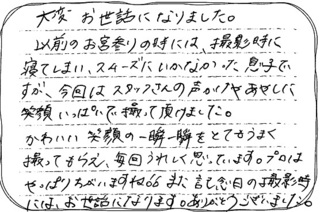 大変 お世話になりました。
以前のお宮参りの時には、撮影時に
寝てしまい、スムーズにいかなかった息子で
すが、今回はスタッフさんの声かけやあやしに
笑顔いっぱいで撮って頂けました。
かわいい 笑顔の一瞬一瞬をとてもうまく
撮ってもらえ、毎回うれしく思っています。プロは
やっぱりちがいますね。また記念日の撮影時
には、お世話になります。ありがとうございました。